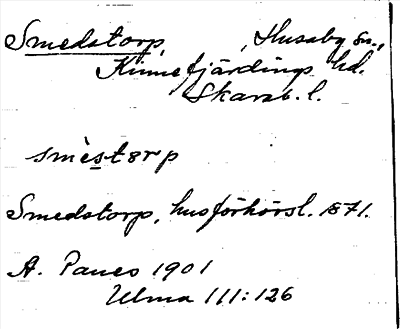 Smedstorp, Husaby sn.,
Kinnefjärdings hd.
Skarab. l.
smèstɘrp
Smedstorp, husförhörsl. 1871.
A. Panes 1901
Ulma 111:126